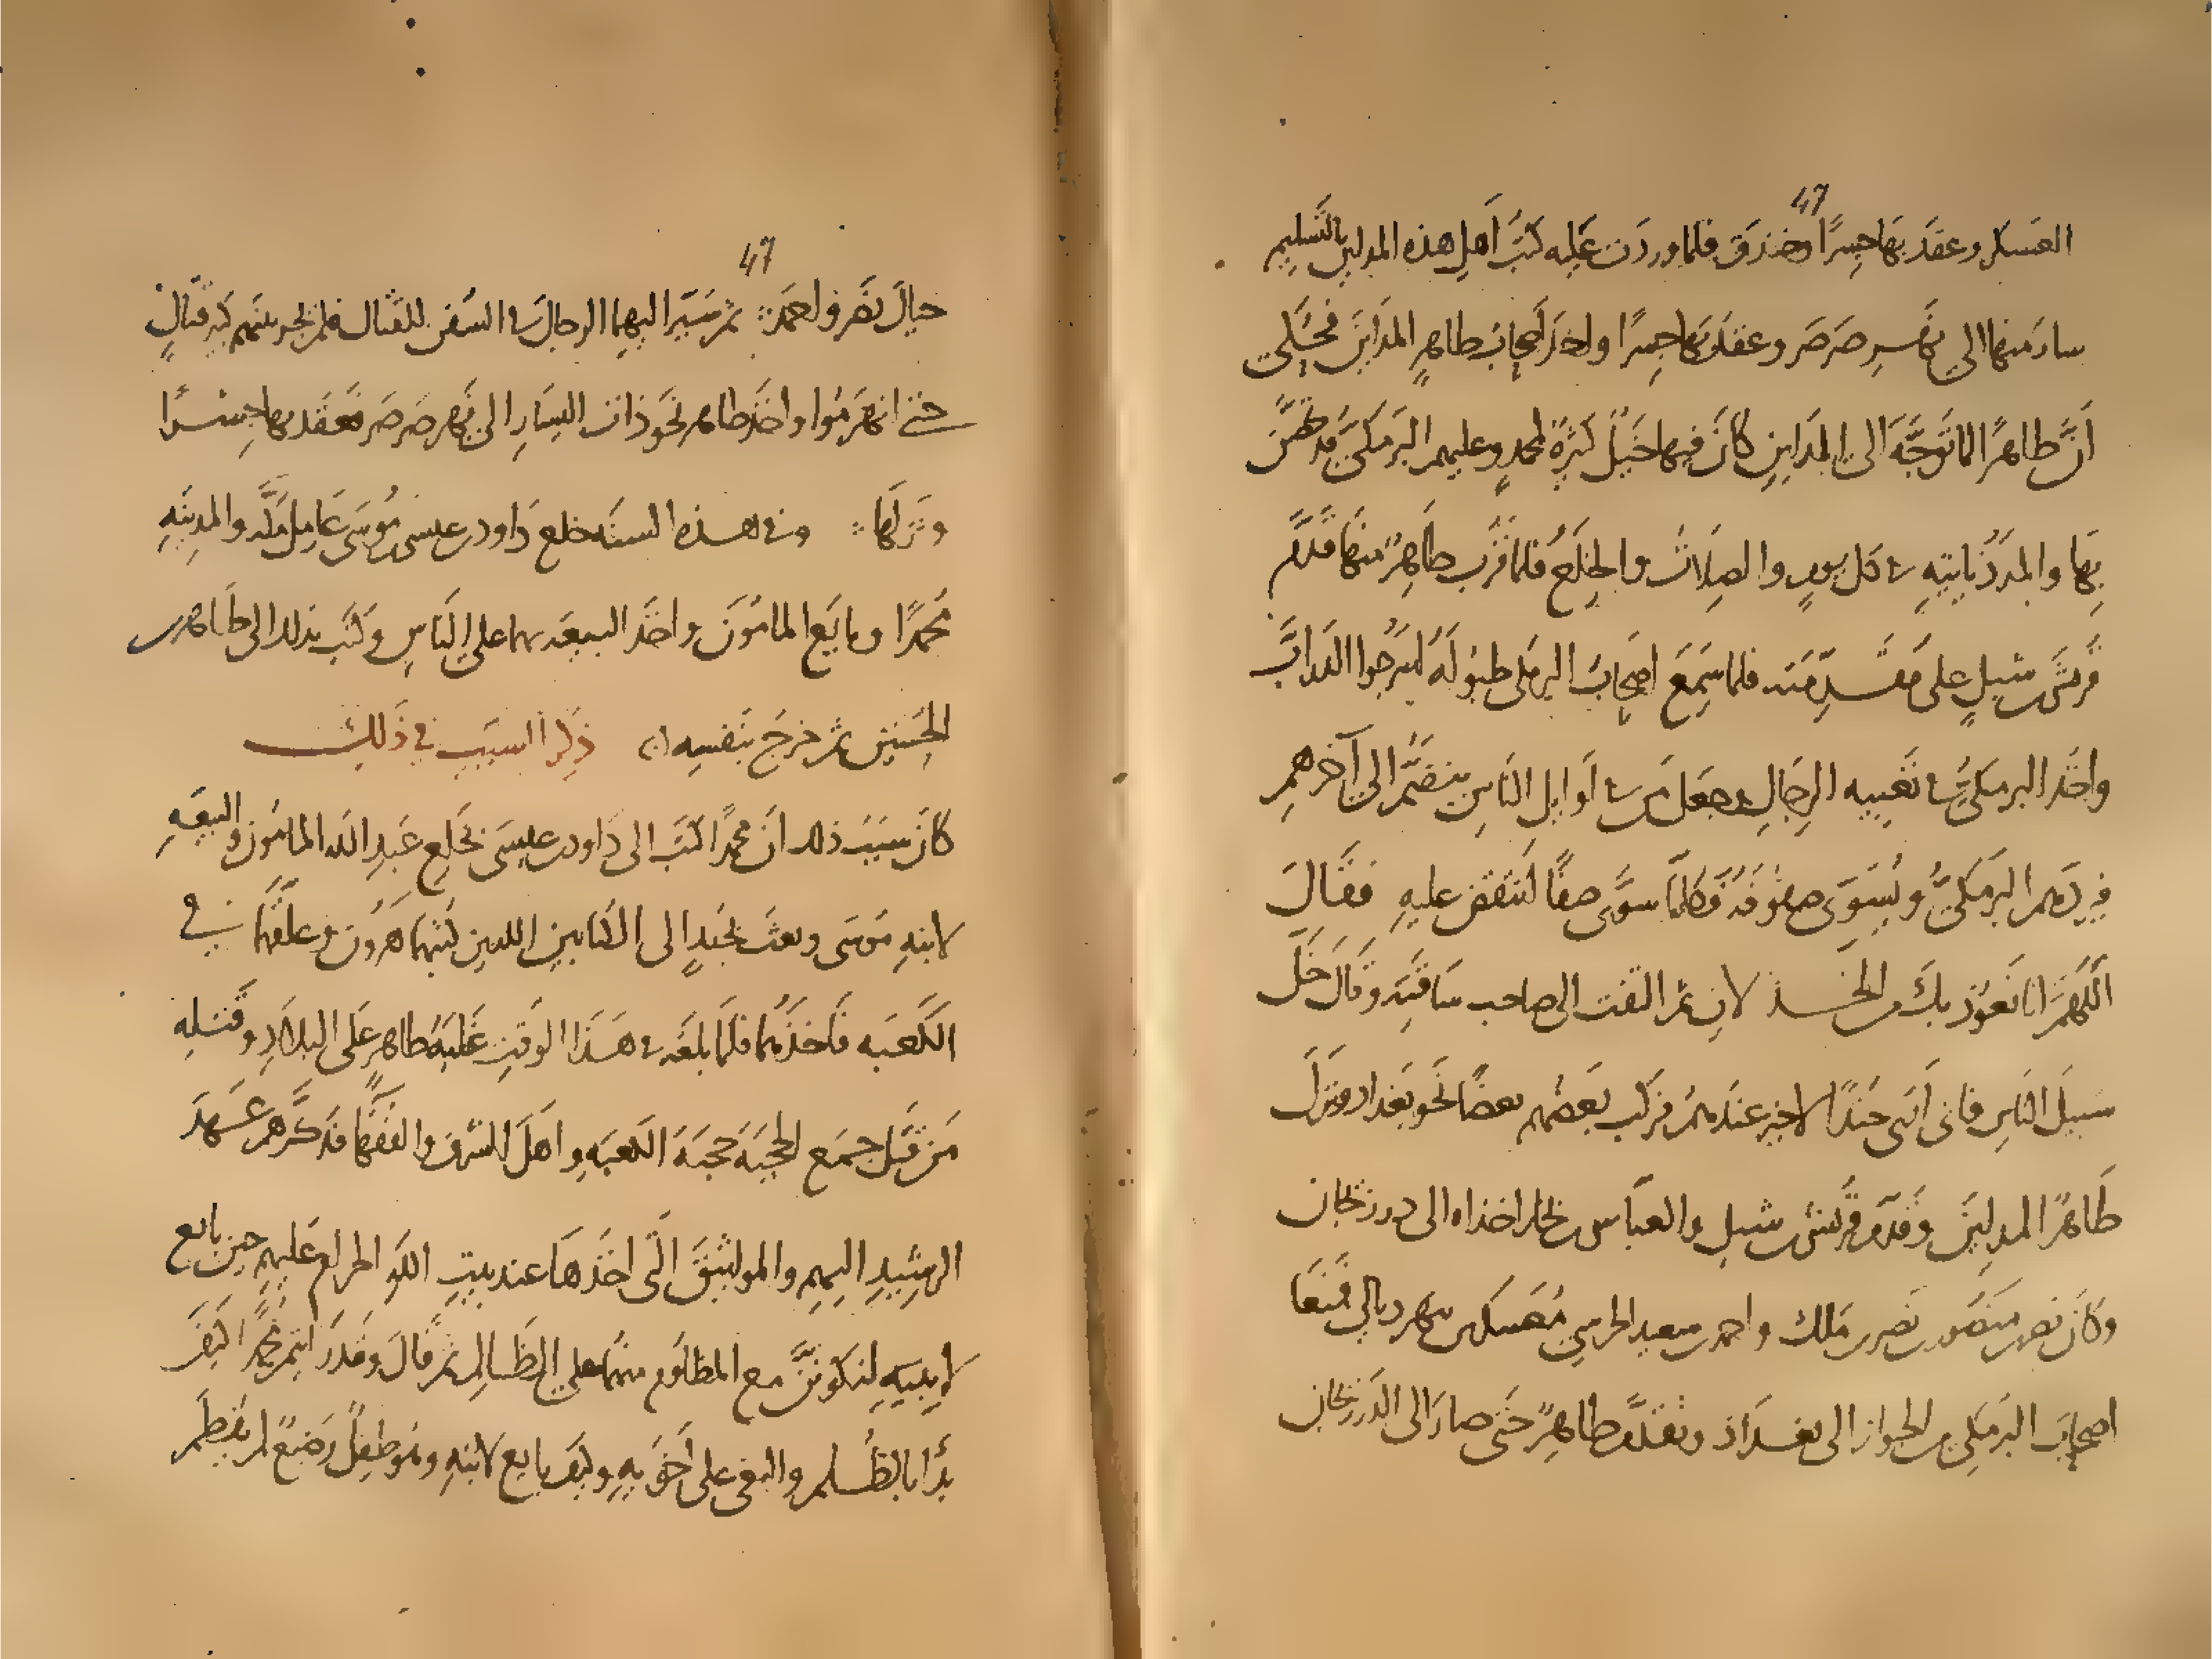 47
العسكر وعقد بها جسرًا وخندق فلما وردت عليه كتب أهل هذه المداين بالتسليم
سار منها الى نهر صرصر وعقد بها جسرًا واخذ أصحاب طاهر المداين فحكى
أنّ طاهرًا لما توجّه الى المداين كان فيها خيل كثيرة لمحمدٍ وعليهم البرمكىّ قد تحصّن
بها والمدد ياتيه في كل يوم والصلات والخلع فلما قرب طاهر منها قدّم
قريش بن شبلٍ على مقدّمته فلما سمع اصحاب البرمكى طبوله أسرجوا الدوابّ
واخذ البرمكىّ في تعبيه الرجال وجعل من في أوايل الناس ينضمّ الى آخرهم
فيردهم البرمكىّ ويسوّى صفوفه فكلما سوّى صفًا انتقض عليه فقال
اللهمّ انا نعوذ بك من الخذلان ثم التفت الى صاحب ساقته وقال خلّ
سبيل الناس فانى أرى جندًا لا خير عندهم فركب بعضهم بعضًا نحو بغداد ونزل
طاهرٌ المداين وقدّم قريش بن شبل والعباس بن بخاراخذاه الى درزنجان
وكان نصر بن منصور بن نصر بن ملك واحمد بن سعيد الحرسى معسكرين بنهر ديالى فمنعا
اصحاب البرمكى من الجواز الى بغداد وتقدّم طاهرٌ حتى صار الى الدرزنجان
47
حيال نصر واحمد ثم سيّر اليهما الرجال في السفن للقتال فلم يجر بينهم كبير قتالٍ
حتى انهزموا واخذ طاهر نحو ذات اليسار الى نهر صرصر فعقد بها جسرًا
ونزلها وفى هذه السنه خلع داود بن عيسى بن موسى عامل مكّه والمدينه
محمدًا وبايع المامون واخذ البيعه بهما على الناس وكتب بذلك الى طاهر بن
الحسين ثم خرج بنفسه ذكر السبب في ذلك
كان سبب ذلك انّ محمدًا كتب الى داود بن عيسى بخلع عبد الله المامون والبيعه
لابنه موسى وبعث بجندٍ الى الكتابين اللذين كتبهما هرون وعلّقهما في
الكعبه فاخذهما فلما بلغه في هذا الوقت غلبه طاهر على البلاد وقتله
من قتل جمع الحجبه حجبة الكعبه واهل الشرف والفقها فذكّرهم عهد
الرشيد اليهم والمواثيق الّتى اخذها عند بيت الله الحرام عليهم حين بايع
لابنيه لنكوننّ مع المظلوم منهما على الظالم ثم قال وقد رايتم محمدًا كيف
بدأ بالظلم والبغى على أخويه وكيف بايع لابنه وهو طفلٌ رضيعٌ لم يفطم